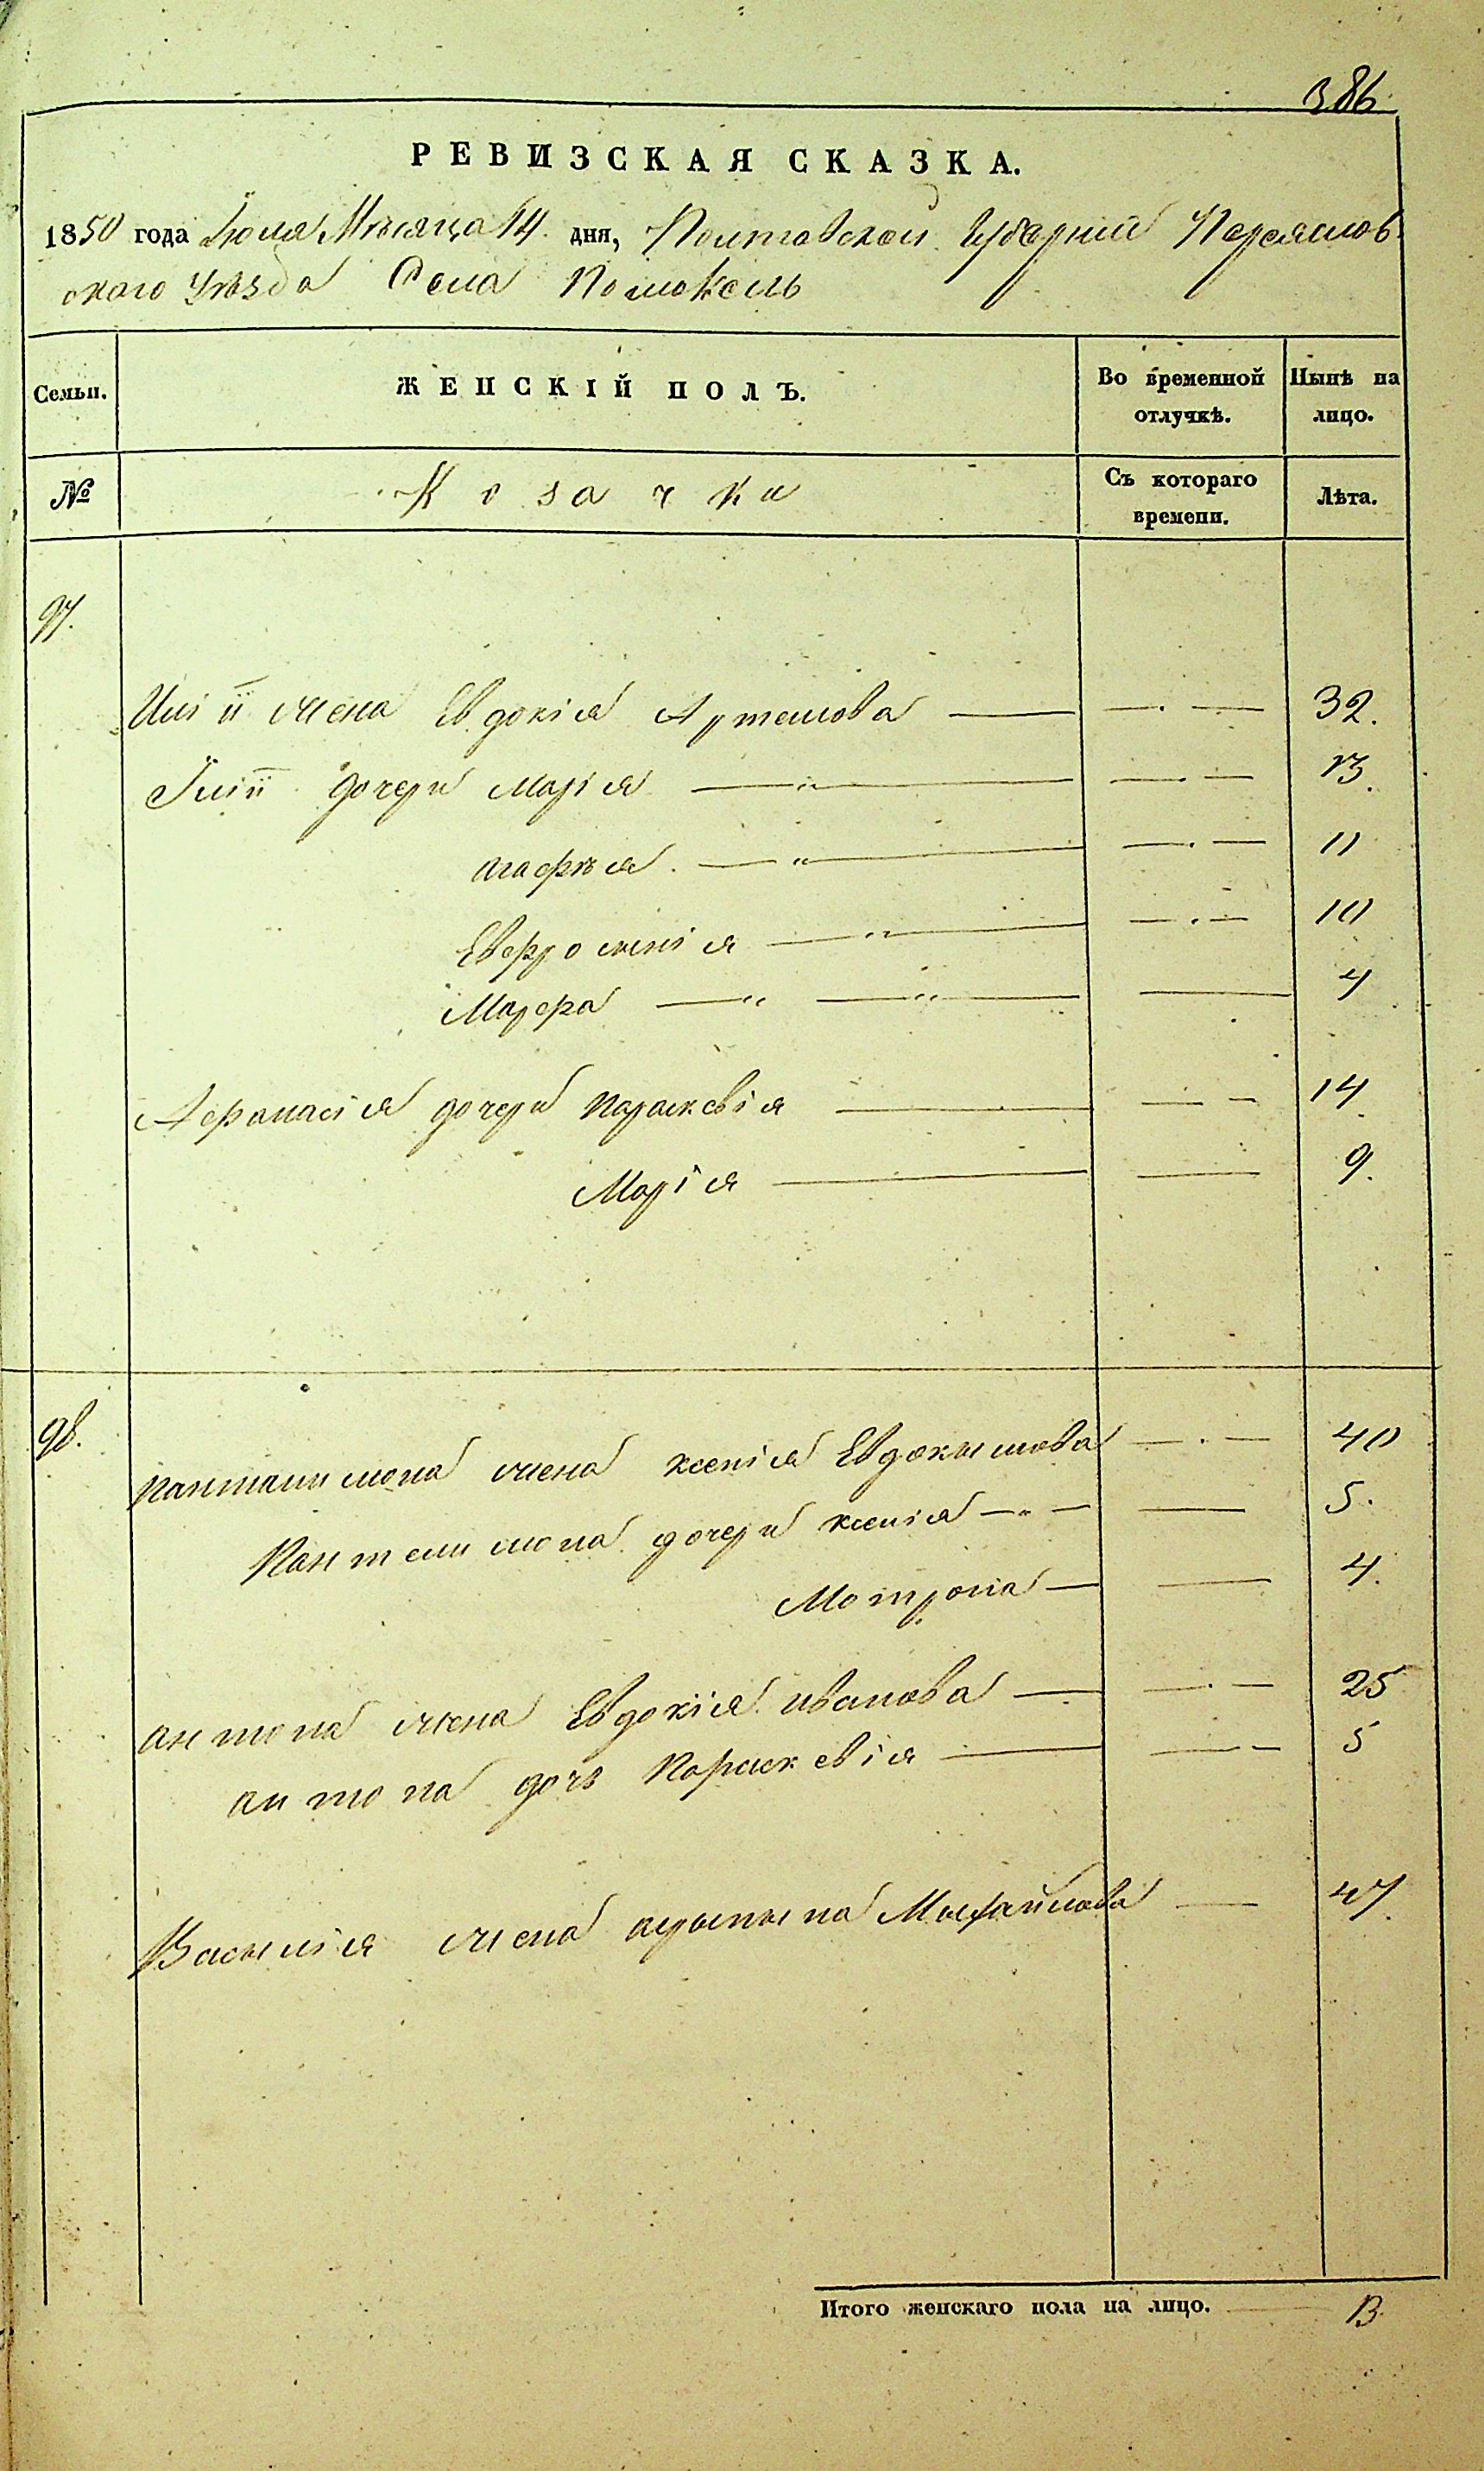 386
РЕВИЗСКАЯ СКАЗКА.
1850 года Іюля Мѣсяца 14 дня, Полтавской Губерніи Переяслов
скаго Уѣзда Села Помоклъ
Семьи. ЖЕНСКІЙ ПОЛЪ. Во временной отлучкѣ. Нынѣ на лицо.
№ Козачки Съ котораго времени. Лѣта.
97.
Иліи жена Евдокія Артемова 32.
Іліи дочери Марія 13.
Агафія 11
Евфросинія 10
Марфа 4
Афанасія дочери Параскевія 14
Марія 9.
98.
Пантелимона жена Ксенія Евдокимова 40
Пантелимона дочери Ксенія 5.
Мотрона 4.
Антона жена Евдокія Иванова 25
Антона дочь Параскевія 5
Василія жена Крыстына Мыхайлова 47.
Итого женскаго пола на лицо. 13.